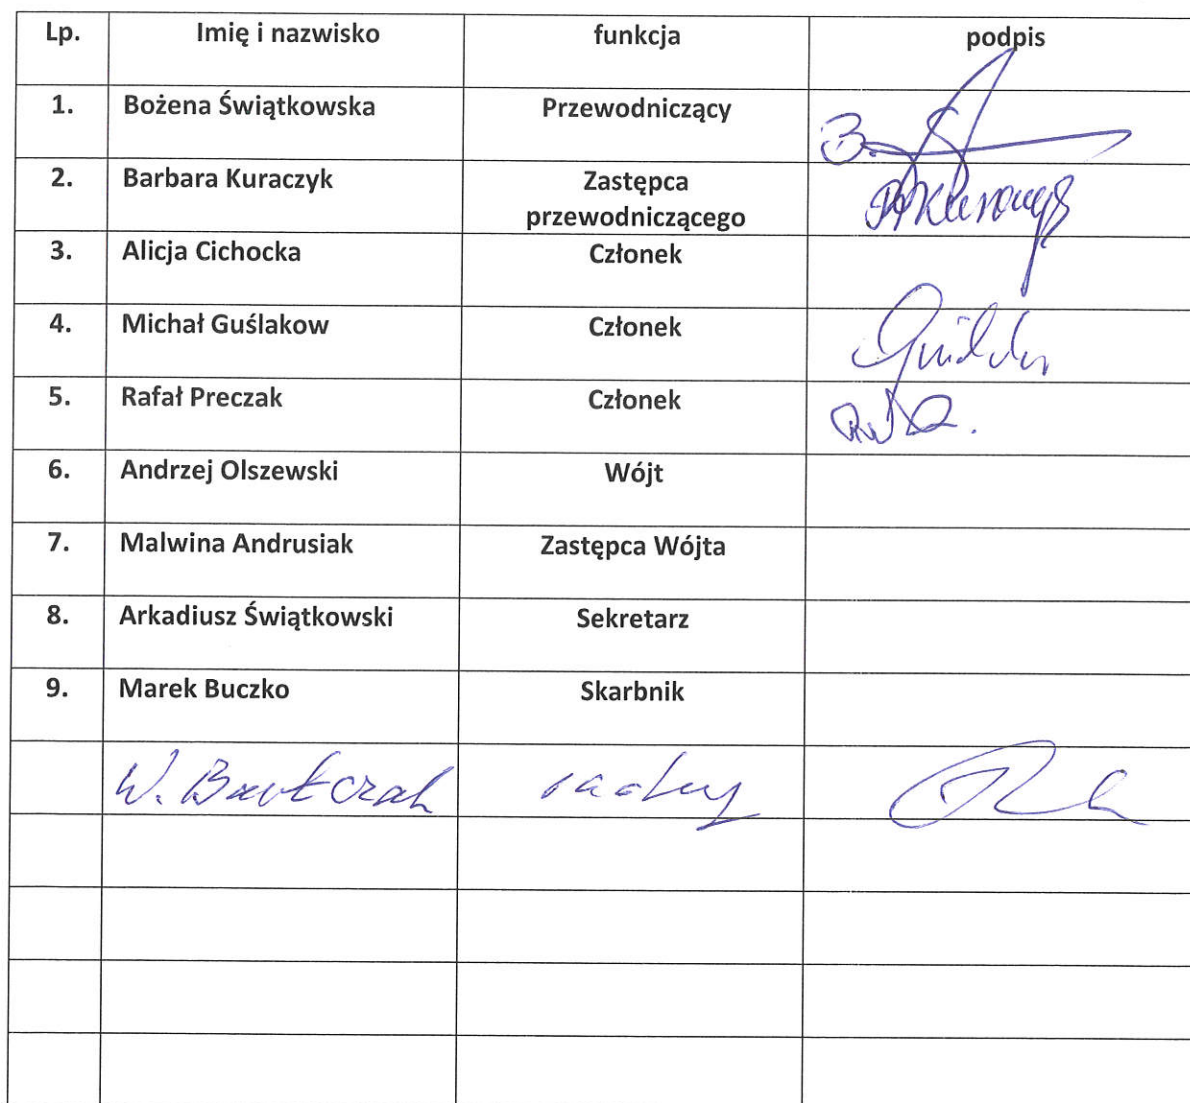 Lp. Imię i nazwisko funkcja podpis
1. Bożena Świątkowska Przewodniczący
2. Barbara Kuraczyk Zastępca
przewodniczącego
3. Alicja Cichocka Członek
4. Michał Guślakow Członek
5. Rafał Preczak Członek
6. Andrzej Olszewski Wójt
7. Malwina Andrusiak Zastępca Wójta
8. Arkadiusz Świątkowski Sekretarz
9. Marek Buczko Skarbnik
W. Bartczak radny